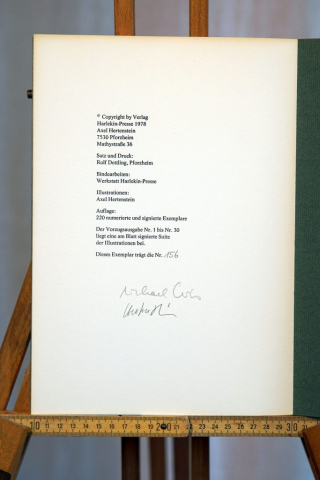 © Copyright by Verlag
Harlekin-Presse 1978
Axel Hertenstein
7530 Pforzheim
Mathystraße 36
Satz und Druck:
Rolf Dettling, Pforzheim
Bindearbeiten:
Werkstatt Harlekin-Presse
Illustrationen:
Axel Hertenstein
Auflage:
220 numerierte und signierte Exemplare
Der Vorzugsausgabe Nr. 1 bis Nr. 30
liegt eine am Blatt signierte Suite
der Illustrationen bei.
Dieses Exemplar trägt die Nr. 156
Michael
10 11 12 13 14 15 16 17 18 19 20 21 22 23 24 25 26 27 28 29 30 31